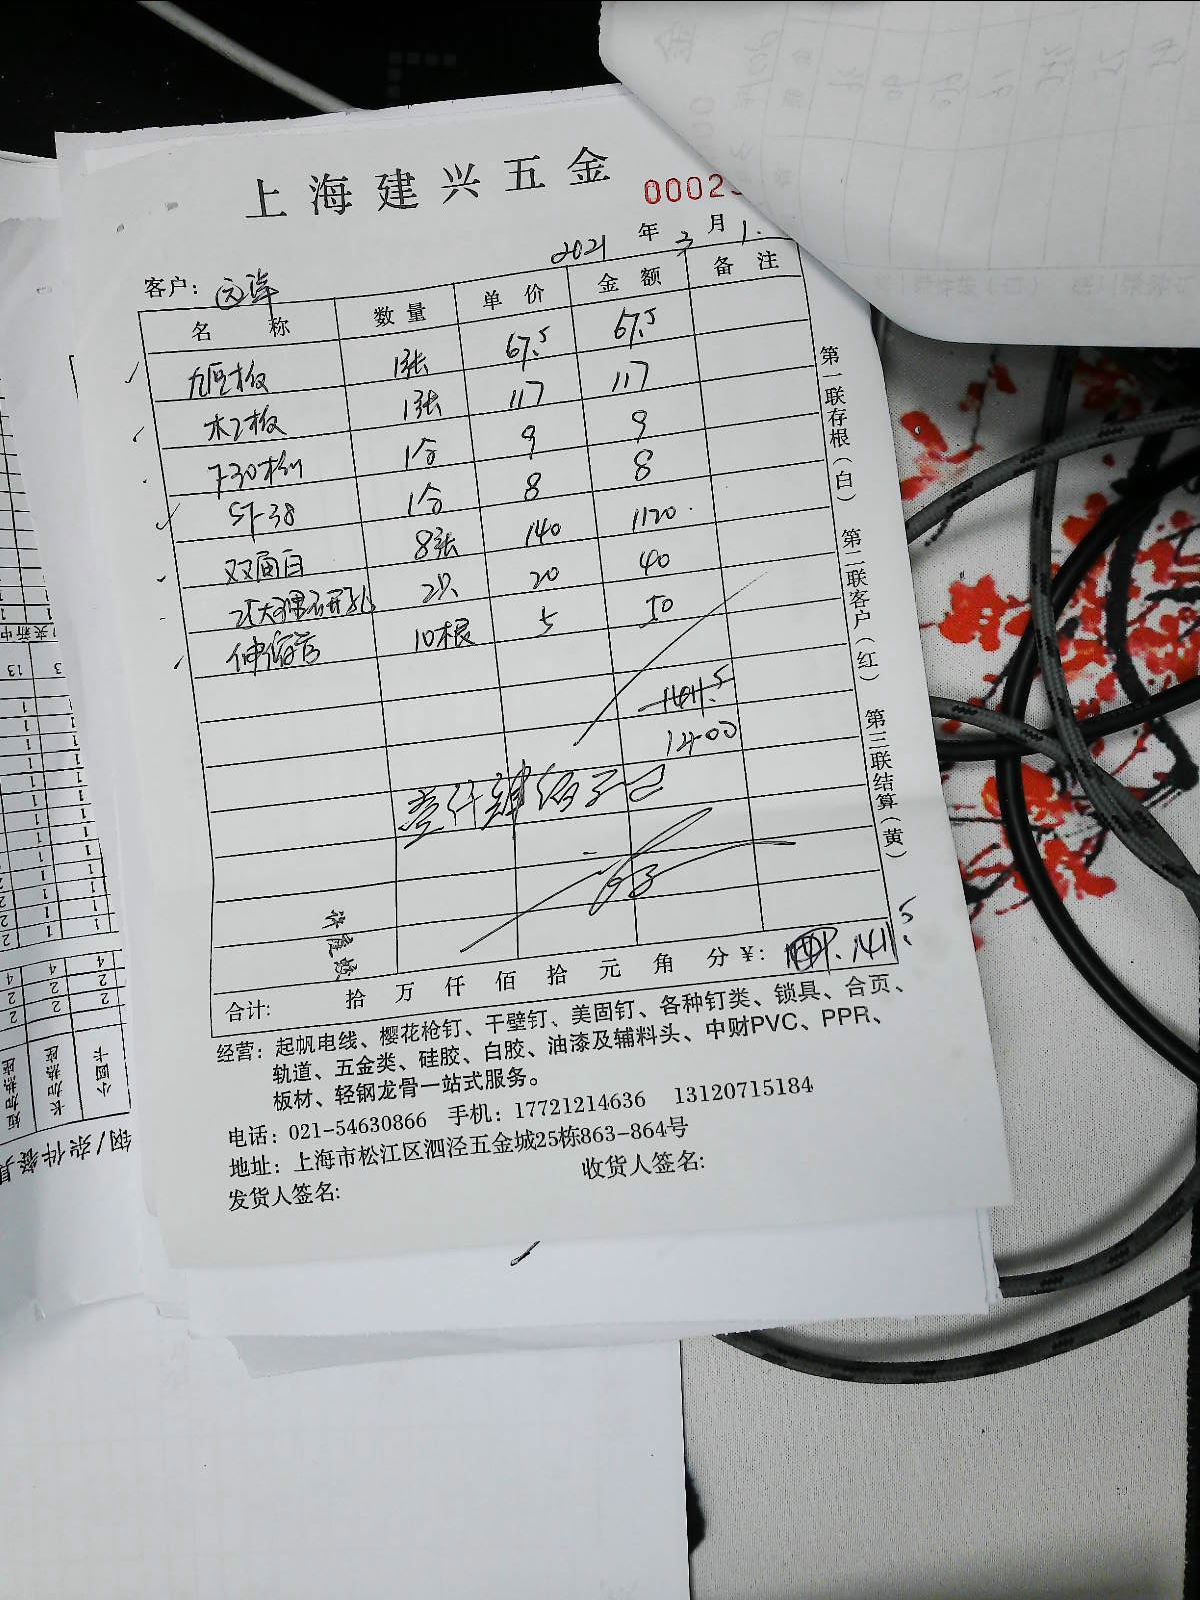 上海建兴五金
0002
2021 年 3 月 1.
客户: 远洋
名 称 数量 单 价 金 额 备 注
九厘板 1张 67.5 67.5
木工板 1张 117 117
F30 1合 9 9
ST-38 1合 8 8
双面白 8张 140 1120.
2只 20 40
伸缩管 10根 5 50
1411.5
1400
壹仟肆佰元
合计: 拾 万 仟 佰 拾 元 角 分 ¥: 1411.5
第一联存根(白) 第二联客户(红) 第三联结算(黄)
经营: 起帆电线、樱花枪钉、干壁钉、美固钉、各种钉类、锁具、合页、
轨道、五金类、硅胶、白胶、油漆及辅料头、中财PVC、PPR、
板材、轻钢龙骨一站式服务。
电话: 021-54630866 手机: 17721214636 13120715184
地址: 上海市松江区泗泾五金城25栋863-864号
发货人签名: 收货人签名:
短加热座
长加热座
小圆卡
钢/杂件餐具